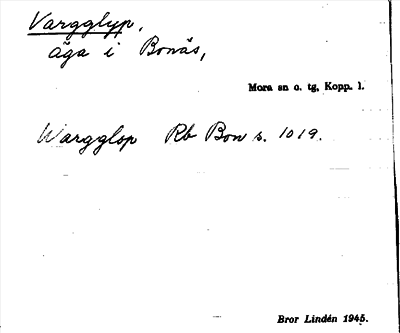 Vargglyp,
äga i Bonäs,
Mora sn o. tg, Kopp. l.
Wargglop Rb Bon s. 1019.
Bror Lindén 1945.